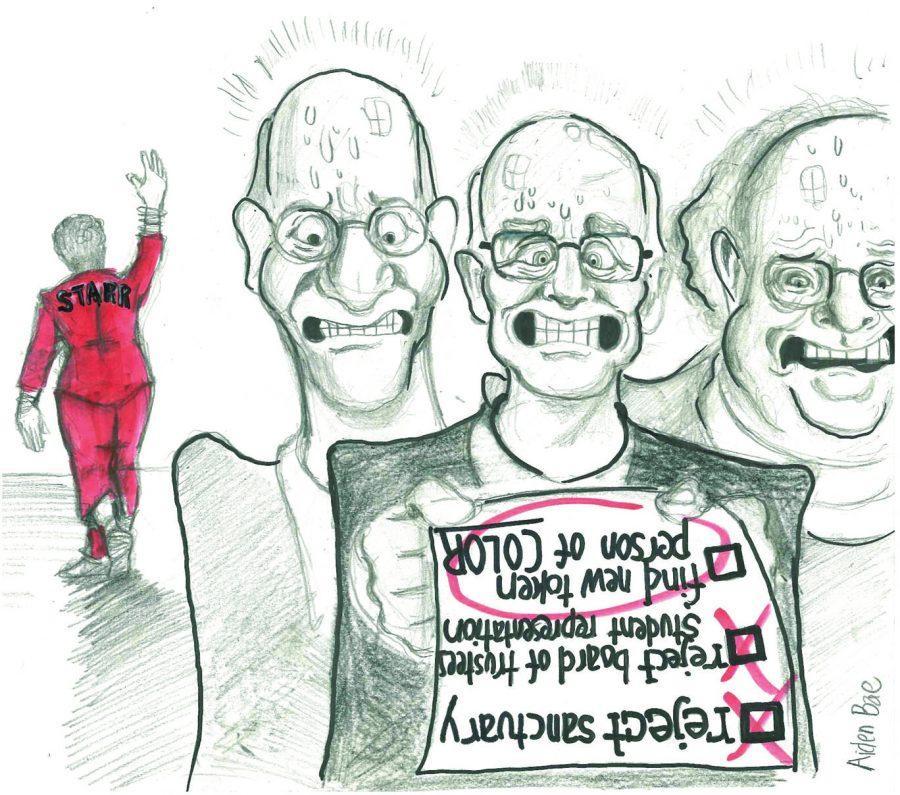 STARR
reject sanctuary
reject board of trustees
student representation
find new token
person of COLOR
Aiden Bae